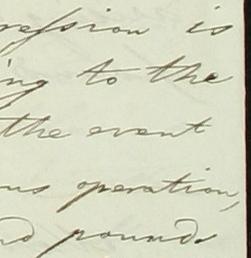 ression is
ing to the
the event
ous operation,
nd pounds